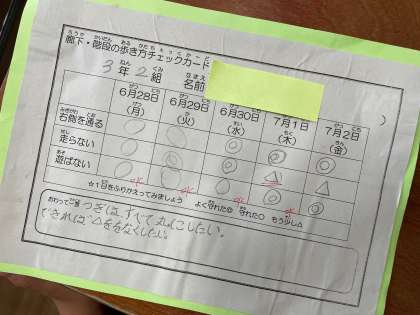 廊下・階段の歩き方チェックカード
3年2組 名前
6月28日(月) 6月29日(火) 6月30日(水) 7月1日(木) 7月2日(金)
右側を通る ○ ○ ◎ ◎ ◎
走らない ○ ○ ◎ △ △
遊ばない ○ ○ ◎ ◎ ◎
☆1日をふりかえってみましょう よく守れた◎ 守れた○ もう少し△
おわって
つぎはすべて丸にしたい。
できれば△をなくしたい。